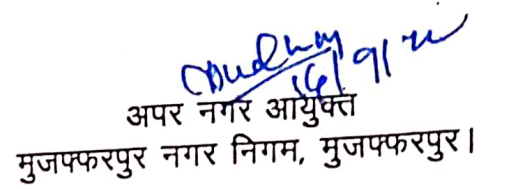 16/9/22
अपर नगर आयुक्त
मुजफ्फरपुर नगर निगम, मुजफ्फरपुर।